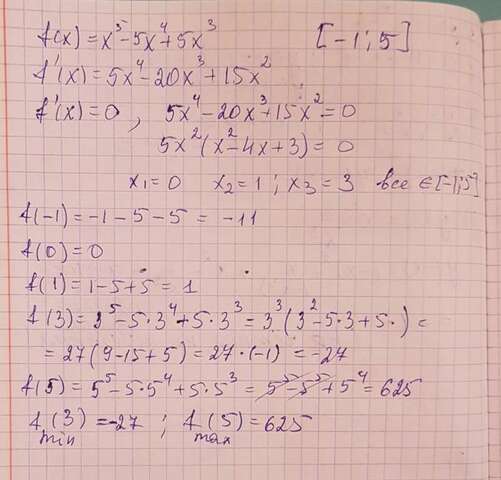 f(x)=x⁵-5x⁴+5x³ [-1;5]
f'(x)=5x⁴-20x³+15x²
f'(x)=0, 5x⁴-20x³+15x²=0
5x²(x²-4x+3)=0
x₁=0 x₂=1; x₃=3 все ∈[-1;5]
f(-1)=-1-5-5=-11
f(0)=0
f(1)=1-5+5=1
f(3)=3⁵-5·3⁴+5·3³=3³(3²-5·3+5·)=
=27(9-15+5)=27·(-1)=-27
f(5)=5⁵-5·5⁴+5·5³=5⁵-5⁵+5⁴=625
f(3)=-27; f(5)=625
min max